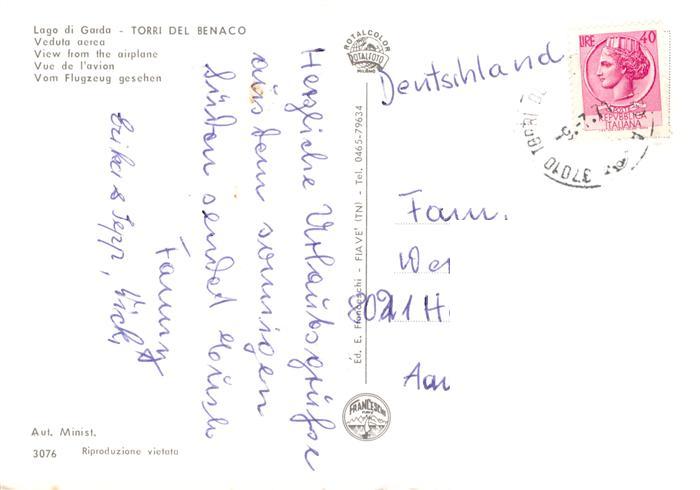 Lago di Garda - TORRI DEL BENACO
Veduta aerea
View from the airplane
Vue de l'avion
Vom Flugzeug gesehen
Herzliche Urlaubsgrüße
aus dem sonnigen
Süden sendet
Fanny
Erika & Sepp,
Aut. Minist.
3076 Riproduzione vietata
ROTALCOLOR
ROTALFOTO
MILANO
Ed. E. Franceschi - FIAVE' (TN) - Tel. 0465-79634
FRANCESCHI
Deutschland
LIRE 40
REPVBBLICA
ITALIANA
37010 TORRI D
Fam.
We
8021 H
Am